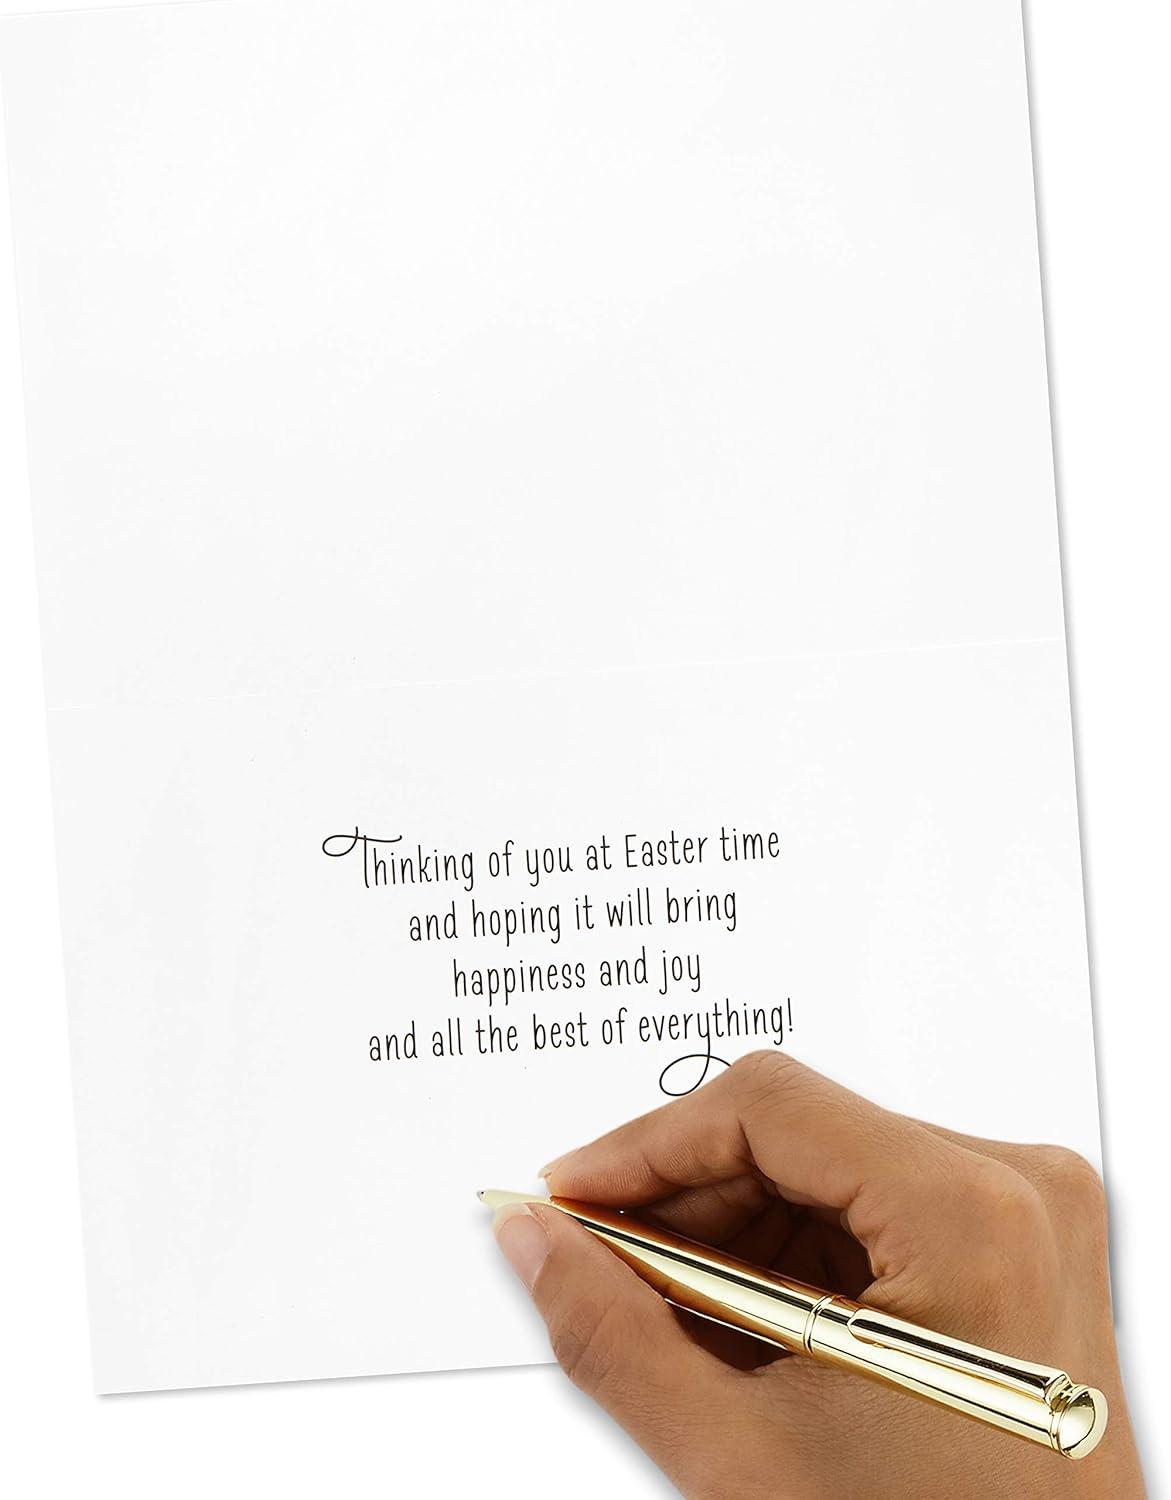 Thinking of you at Easter time
and hoping it will bring
happiness and joy
and all the best of everything!